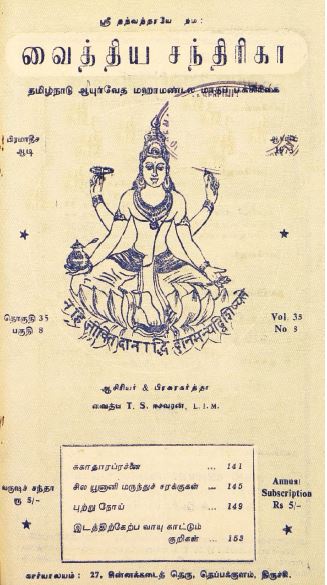 ஸ்ரீ தந்வந்தரயே நம:
வைத்திய சந்திரிகா
தமிழ்நாடு ஆயுர்வேத மஹாமண்டல மாதப் பத்திரிகை
பிரமாதீச
ஆடி
1973
தொகுதி 35
பகுதி 8
Vol. 35
No 8
नहि जीवितदानाद्धि दानमन्यद्विशिष्यते
ஆசிரியர் & பிரசுரகர்த்தா
வைத்ய T. S. ஈசுவரன், L. I. M.
வருஷச் சந்தா
ரூ 5/-
சுகாதாரப்ரச்னை ... 141
சில யூனானி மருந்துச் சரக்குகள் ... 145
புற்று நோய் ... 149
இடத்திற்கேற்ப வாயு காட்டும்
குறிகள் ... 153
Annual
Subscription
Rs 5/-
கார்யாலயம் : 27, சின்னக்கடைத் தெரு, தெப்பக்குளம், திருச்சி.